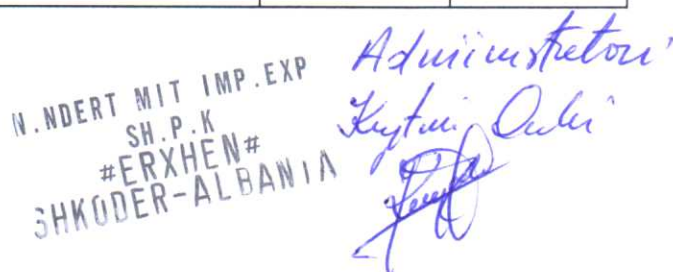 N.NDERT MIT IMP.EXP
SH.P.K
#ERXHEN#
SHKODER-ALBANIA
Administratori